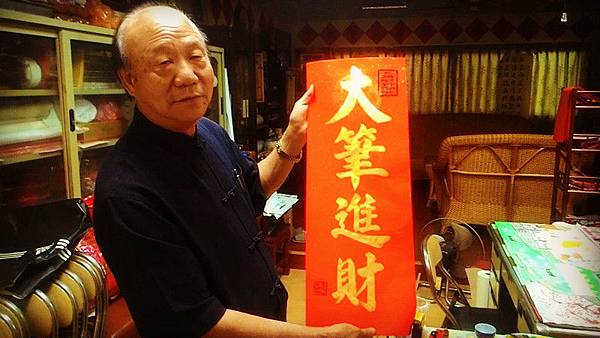 大筆進財